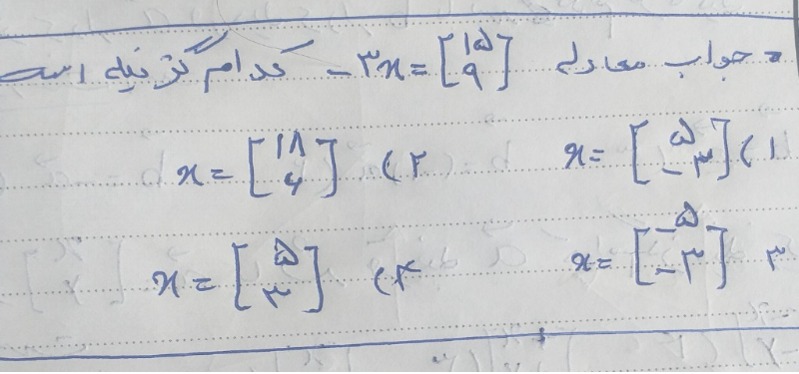 جواب معادلهٔ -۳x = [۱۵ ۹] کدام گزینه است
۱) x = [۵ -۳] ۲) x = [۱۸ ۶]
۳ x = [-۵ -۳] ۴) x = [۵ ۳]